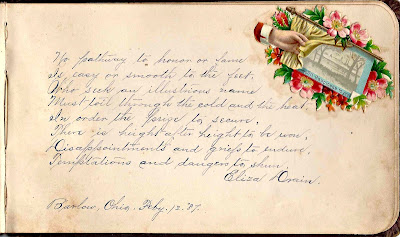 No pathway to honor or fame
Is easy or smooth to the feet.
Who seek an illustrious name
Must toil through the cold and the heat.
In order the prize to secure.
There is height after height to be won,
Disappointments and griefs to endure,
Temptations and dangers to shun.
Eliza Drain.
Barlow, Ohio. Feby. 12. '87.